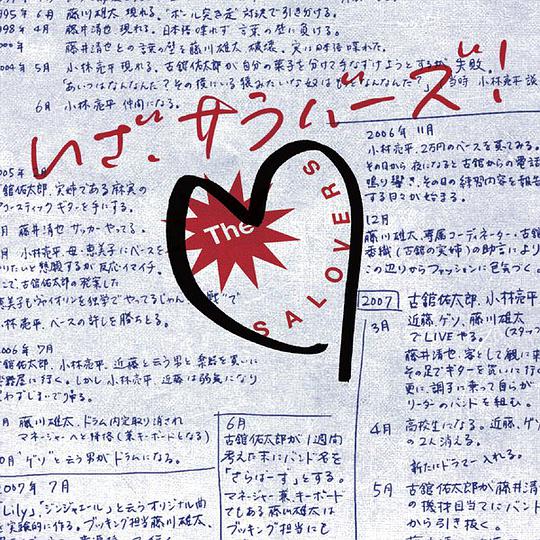 995年 6月 藤川雄太 現れる。"ボール突き定"対決で引き分ける。
998年 4月 藤井清也 現れる。日本語喋れず 言葉の壁に負ける。
藤井清也との言葉の壁を藤川雄太 破壊。実は日本語喋れた。
2004年 5月 小林亮平 現る。古舘佑太郎が自分の菓子を分けて手なずけようとするも 失敗。
6月 小林亮平 仲間になる。
いざ、サラバーズ!
The
SALOVERS
005年
舘佑太郎、実姉である麻実の
アコースティックギターを手にする。
月 藤井清也 サッカーやってる。
月 小林亮平・母・恵美子にベースを
りたいと懇願するが反応イマイチ。
こで、古舘佑太郎の発案した
恵美子もヴァイオリンを独学でやってるじゃん
林亮平、ベースの許しを勝ちとる。
006年 7月
舘佑太郎、小林亮平、近藤と云う男と楽器を買いに
楽器屋に行く。しかし小林亮平、近藤は弱気になり
買わずじまいで帰る。
月 藤川雄太、ドラム内定取り消され
マネージャーへと降格(兼キーボードとなる)
10月 "ゲソ"と云う男がドラムになる。
2007年 7月
「Lily」、「ジンジャエール」と云うオリジナル曲
を実験的に作る。ブッキング担当藤川雄太、
6月
古舘佑太郎が1週間
考えた末にバンド名を
「さらばーず」とする。
マネージャー兼キーボード
でもある藤川雄太は
ブッキング担当にも
2006年 11月
小林亮平、2万円のベースを買ってみる。
その日から夜になると古舘からの電話
鳴り響き、その日の練習内容を報告
する日々が始まる。
12月
藤川雄太、専属コーディネーター・古舘
香織(古舘の実姉)の助言により
この辺りからファッションに色気づく。
2007
古舘佑太郎、小林亮平
3月 近藤、ゲソ、藤川雄太
でLIVEやる。(スタッフ
藤井清也、客として観に来
その足でギターを買いに行
更に調子に乗って自らが
リーダーのバンドを組む。
4月 高校生になる。近藤、ゲソ
の2人消える。
新たにドラマー入れる。
5月 古舘佑太郎が藤井清
の機材目当てにバンド
から引き抜く。